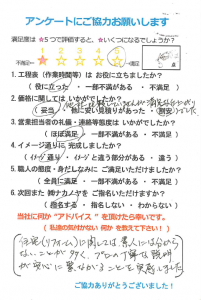 アンケートにご協力お願いします
満足度は★5つで評価すると、★いくつになるでしょうか？
不満足 ★ ★ ★ ★ ★
1. 工程表（作業時間等）は お役に立ちましたか？
（役に立った ・ 一部不満がある ・ 不満足 ）
2. 価格に関しては いかがでしたか？
（妥当 ・ 他に安い見積りがあった ・ 割安
3. 営業担当者の礼儀・連絡等態度は いかがでしたか？
（ほぼ満足 ・ 一部不満がある ・ 不満 ）
4. イメージ通りに 完成しましたか？
（イメージ通り ・ イメージと違う部分がある ・ 違う ）
5. 職人の態度・身だしなみに ご満足いただけましたか？
（全員に満足 ・ 一部不満がある ・ 不満足 ）
6. 次回また ㈱ナカノヤを ご指名いただけますか？
（指名する ・ 指名しない ・ わからない ）
当社に何か“アドバイス”を頂けたら幸いです。
（ 私達の気付かない 何か を教えて下さい！ ）
住宅（リフォーム）に関しては、素人には分からない
ことが多く、プロの丁寧な説明
が安心に繋がることを実感しました
ご協力ありがとうございました！